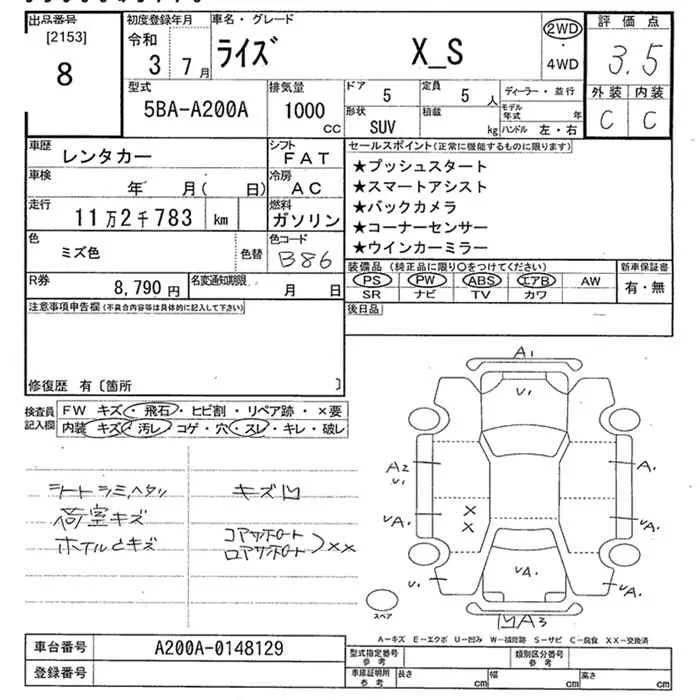 出品番号
[2153]
8
初度登録年月
令和
3 7月
車名・グレード
ライズ X_S
2WD
・
4WD
評価点
3.5
外装 内装
C C
型式
5BA-A200A
排気量
1000
CC
ドア
5
定員
5 人
ディーラー・並行
形状
SUV
積載
kg
モデル年式 年
ハンドル 左・右
車歴
レンタカー
シフト
FAT
車検
年 月( 日)
冷房
AC
走行
11万2千783 km
燃料
ガソリン
色
ミズ色
色替
色コード
B86
R券
8,790 円
名変通知期限
月 日
セールスポイント(正常に機能するものに限ります)
★プッシュスタート
★スマートアシスト
★バックカメラ
★コーナーセンサー
★ウインカーミラー
装備品 (純正品に限り○をつけてください)
PS PW ABS エアB AW
SR ナビ TV カワ
新車保証書
有・無
後日品
注意事項申告欄(不具合内容等は具体的に記入して下さい)
修復歴 有〔箇所 〕
検査員
記入欄
FW キズ・飛石・ヒビ割・リペア跡・×要
内装 キズ・汚レ・コゲ・穴・スレ・キレ・破レ
シートシミ,ヘタリ
荷室キズ
ホイルとキズ
キズ凹
コアサポート
ロアサポート
××
A1
U1
A2
U1
UA1
×
×
A1
UA1
U1
UA1
UA1
凹A3
スペア
A-キズ E-エクボ U-凹み W-補修跡 S-サビ C-腐食 XX-交換済
車台番号
A200A-0148129
登録番号
型式指定番号
参考
類別区分番号
参考
車庫証明用
参考
長さ cm
幅 cm
高さ cm